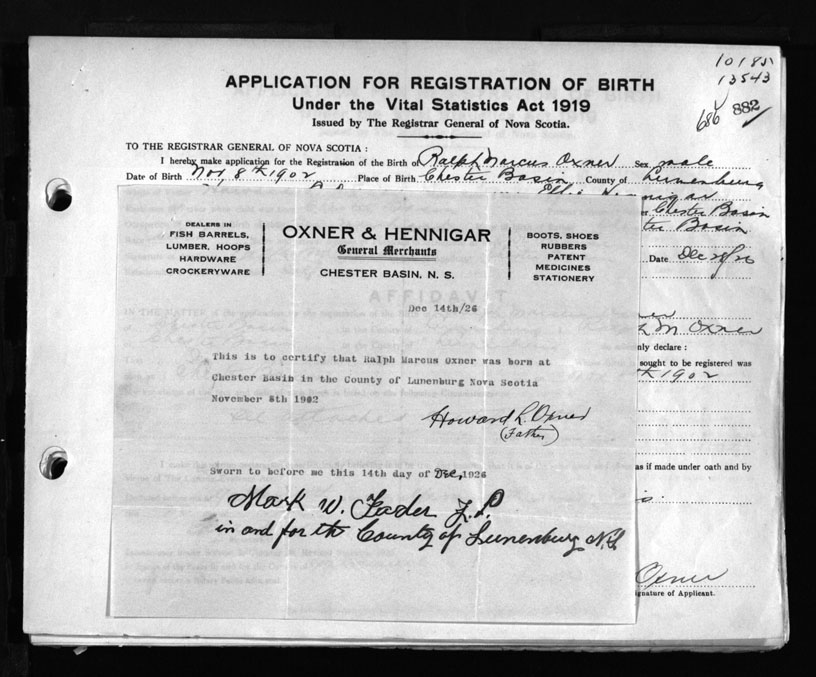 10185
13543
686 882
APPLICATION FOR REGISTRATION OF BIRTH
Under the Vital Statistics Act 1919
Issued by The Registrar General of Nova Scotia.
TO THE REGISTRAR GENERAL OF NOVA SCOTIA :
I hereby make application for the Registration of the Birth of Ralph Marcus Oxner Sex male
Date of Birth Nov, 8th 1902 Place of Birth Chester Basin County of Lunenburg
Chester Basin
Basin
Date Dec
AFFIDAVIT
M Oxner
declare :
sought to be registered was
1902
as if made under oath and by
Oxner
Signature of Applicant.
DEALERS IN
FISH BARRELS,
LUMBER, HOOPS
HARDWARE
CROCKERYWARE
OXNER & HENNIGAR
General Merchants
CHESTER BASIN, N. S.
BOOTS, SHOES
RUBBERS
PATENT
MEDICINES
STATIONERY
Dec 14th/26
This is to certify that Ralph Marcus Oxner was born at
Chester Basin in the County of Lunenburg Nova Scotia
November 8th 1902
Howard L. Oxner
(Father)
Sworn to before me this 14th day of Dec, 1926
Mark W. Fader J.P.
in and for the County of Lunenburg N.S